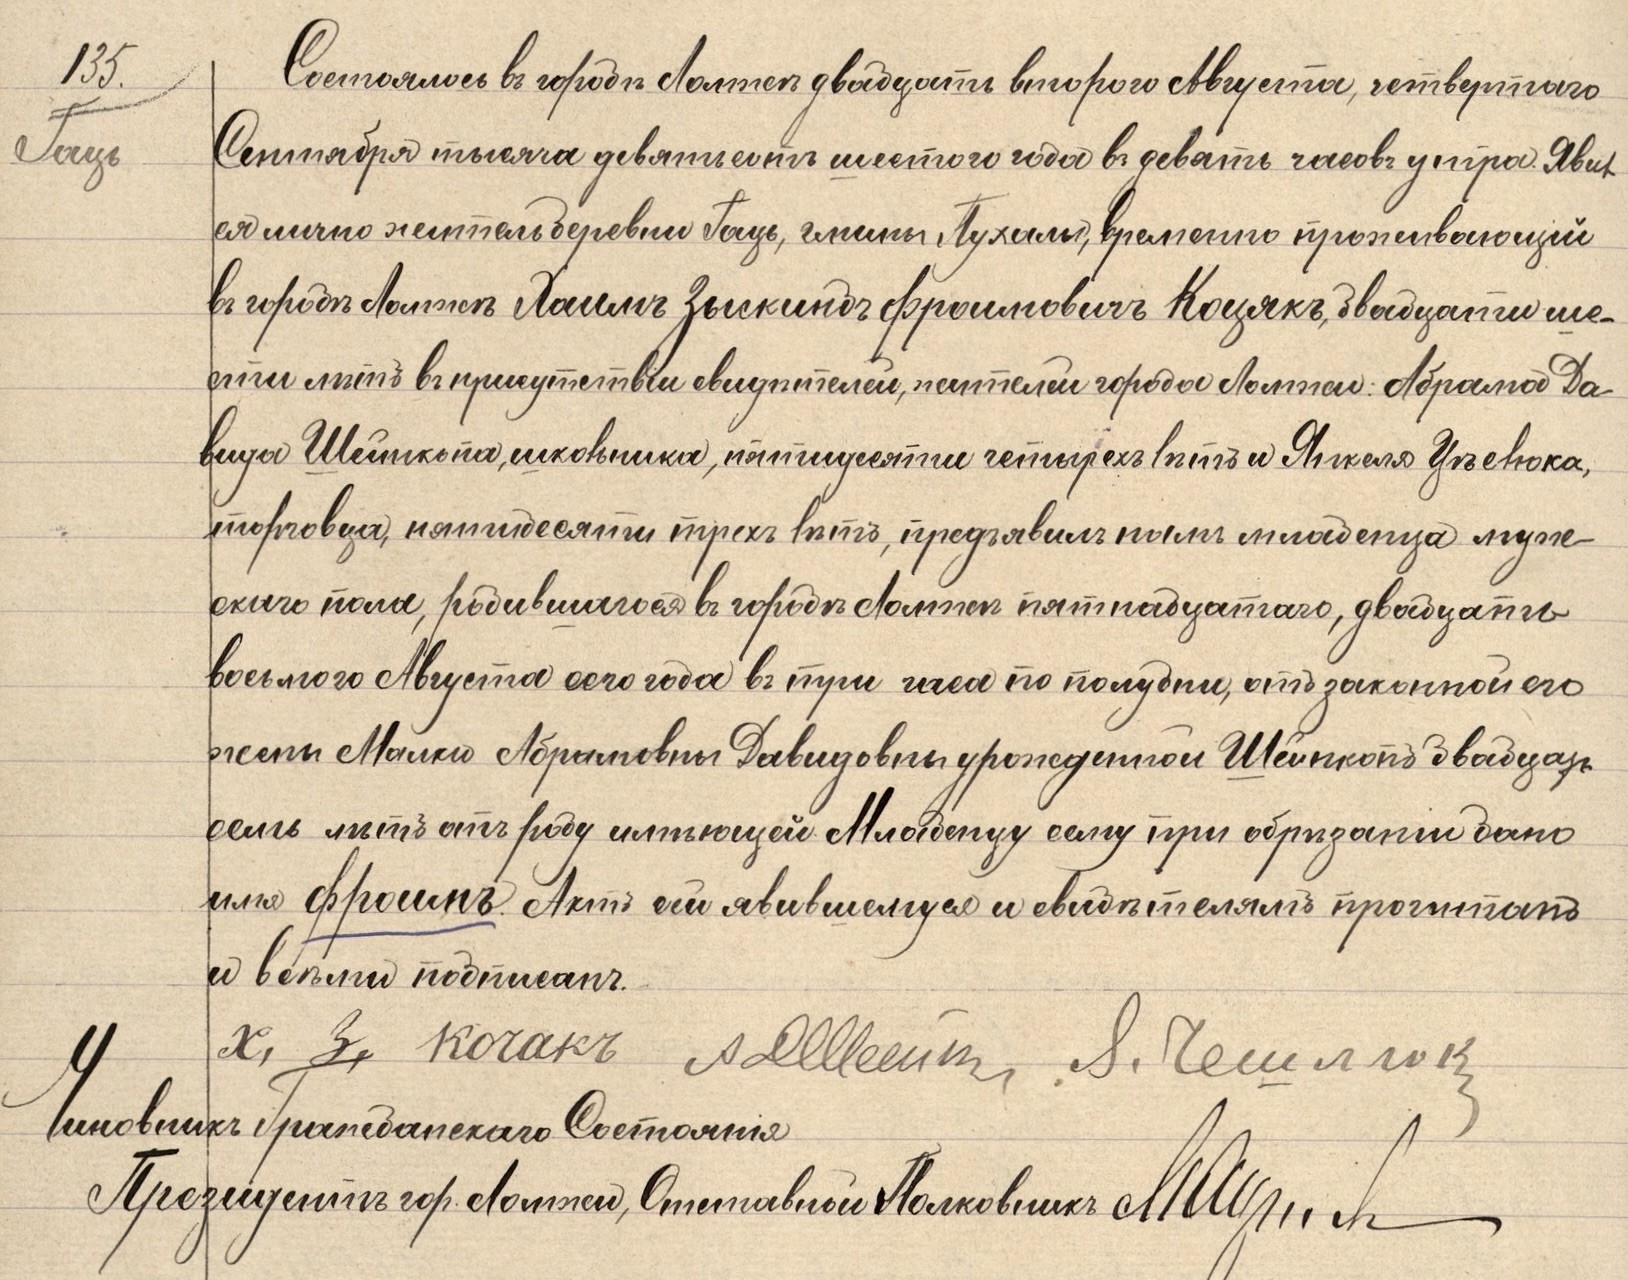 135.
Гаць
Состоялось въ городѣ Ломжѣ двадцать второго Августа, четвертаго
Сентября тысяча девятьсотъ шестого года въ девять часовъ утра. Явил
ся лично житель деревни Гаць, гмины Пухалы, временно проживающій
въ городѣ Ломжѣ Хаимъ Зыскиндъ Фроимовичъ Коцякъ, двадцати ше-
сти лѣтъ въ присутствіи свидѣтелей, жителей города Ломжи: Абрама Да-
вида Шейнкопа, школьника, пятидесяти четырехъ лѣтъ и Янкеля
торговца, пятидесяти трехъ лѣтъ, предъявилъ намъ младенца муже-
скаго пола, родившагося въ городѣ Ломжѣ пятнадцатаго, двадцать
восьмого Августа сего года въ три часа по полудни, отъ законной его
жены Малки Абрамовны Давидовны урожденной Шейнкопъ двадцать
семь лѣтъ отъ роду имѣющей. Младенцу сему при обрѣзаніи дано
имя Фроимъ. Актъ сей явившемуся и свидѣтелямъ прочитанъ
и всѣми подписанъ.
Х. З. Кочакъ
Чиновникъ Гражданскаго Состоянія
Президентъ гор. Ломжи, Отставной Полковникъ